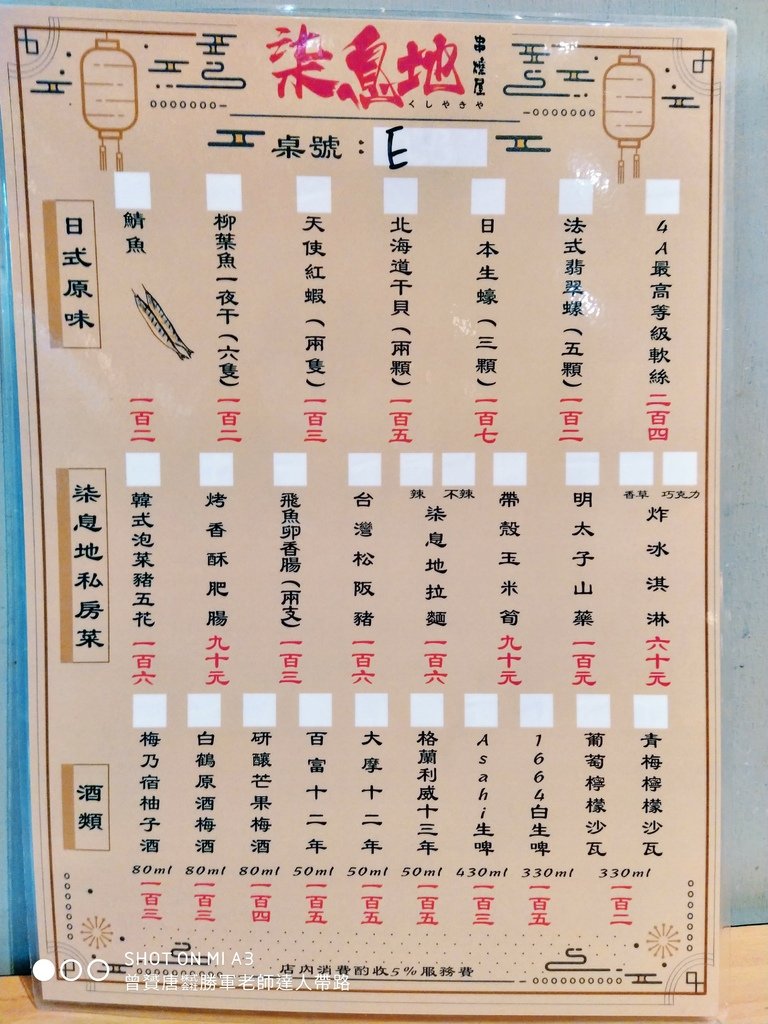 柒息地
串燒屋
くしやきや
桌號：E
日式原味
鯖魚 一百二
柳葉魚一夜干（六隻） 一百二
天使紅蝦（兩隻） 一百三
北海道干貝（兩顆） 一百五
日本生蠔（三顆） 一百七
法式翡翠螺（五顆） 一百二
4A最高等級軟絲 二百四
柒息地私房菜
韓式泡菜豬五花 一百六
烤香酥肥腸 九十元
飛魚卵香腸（兩支） 一百三
台灣松阪豬 一百六
辣 不辣
柒息地拉麵 一百六
帶殼玉米筍 九十元
明太子山藥 一百元
香草 巧克力
炸冰淇淋 六十元
酒類
梅乃宿柚子酒 80ml 一百三
白鶴原酒梅酒 80ml 一百三
研釀芒果梅酒 80ml 一百四
百富十二年 50ml 一百五
大摩十二年 50ml 一百五
格蘭利威十三年 50ml 一百五
Asahi生啤 430ml 一百三
1664白生啤 330ml 一百五
葡萄檸檬沙瓦
青梅檸檬沙瓦
330ml 一百二
店內消費酌收5%服務費
SHOT ON MI A3
曾賢唐巍勝軍老師達人帶路